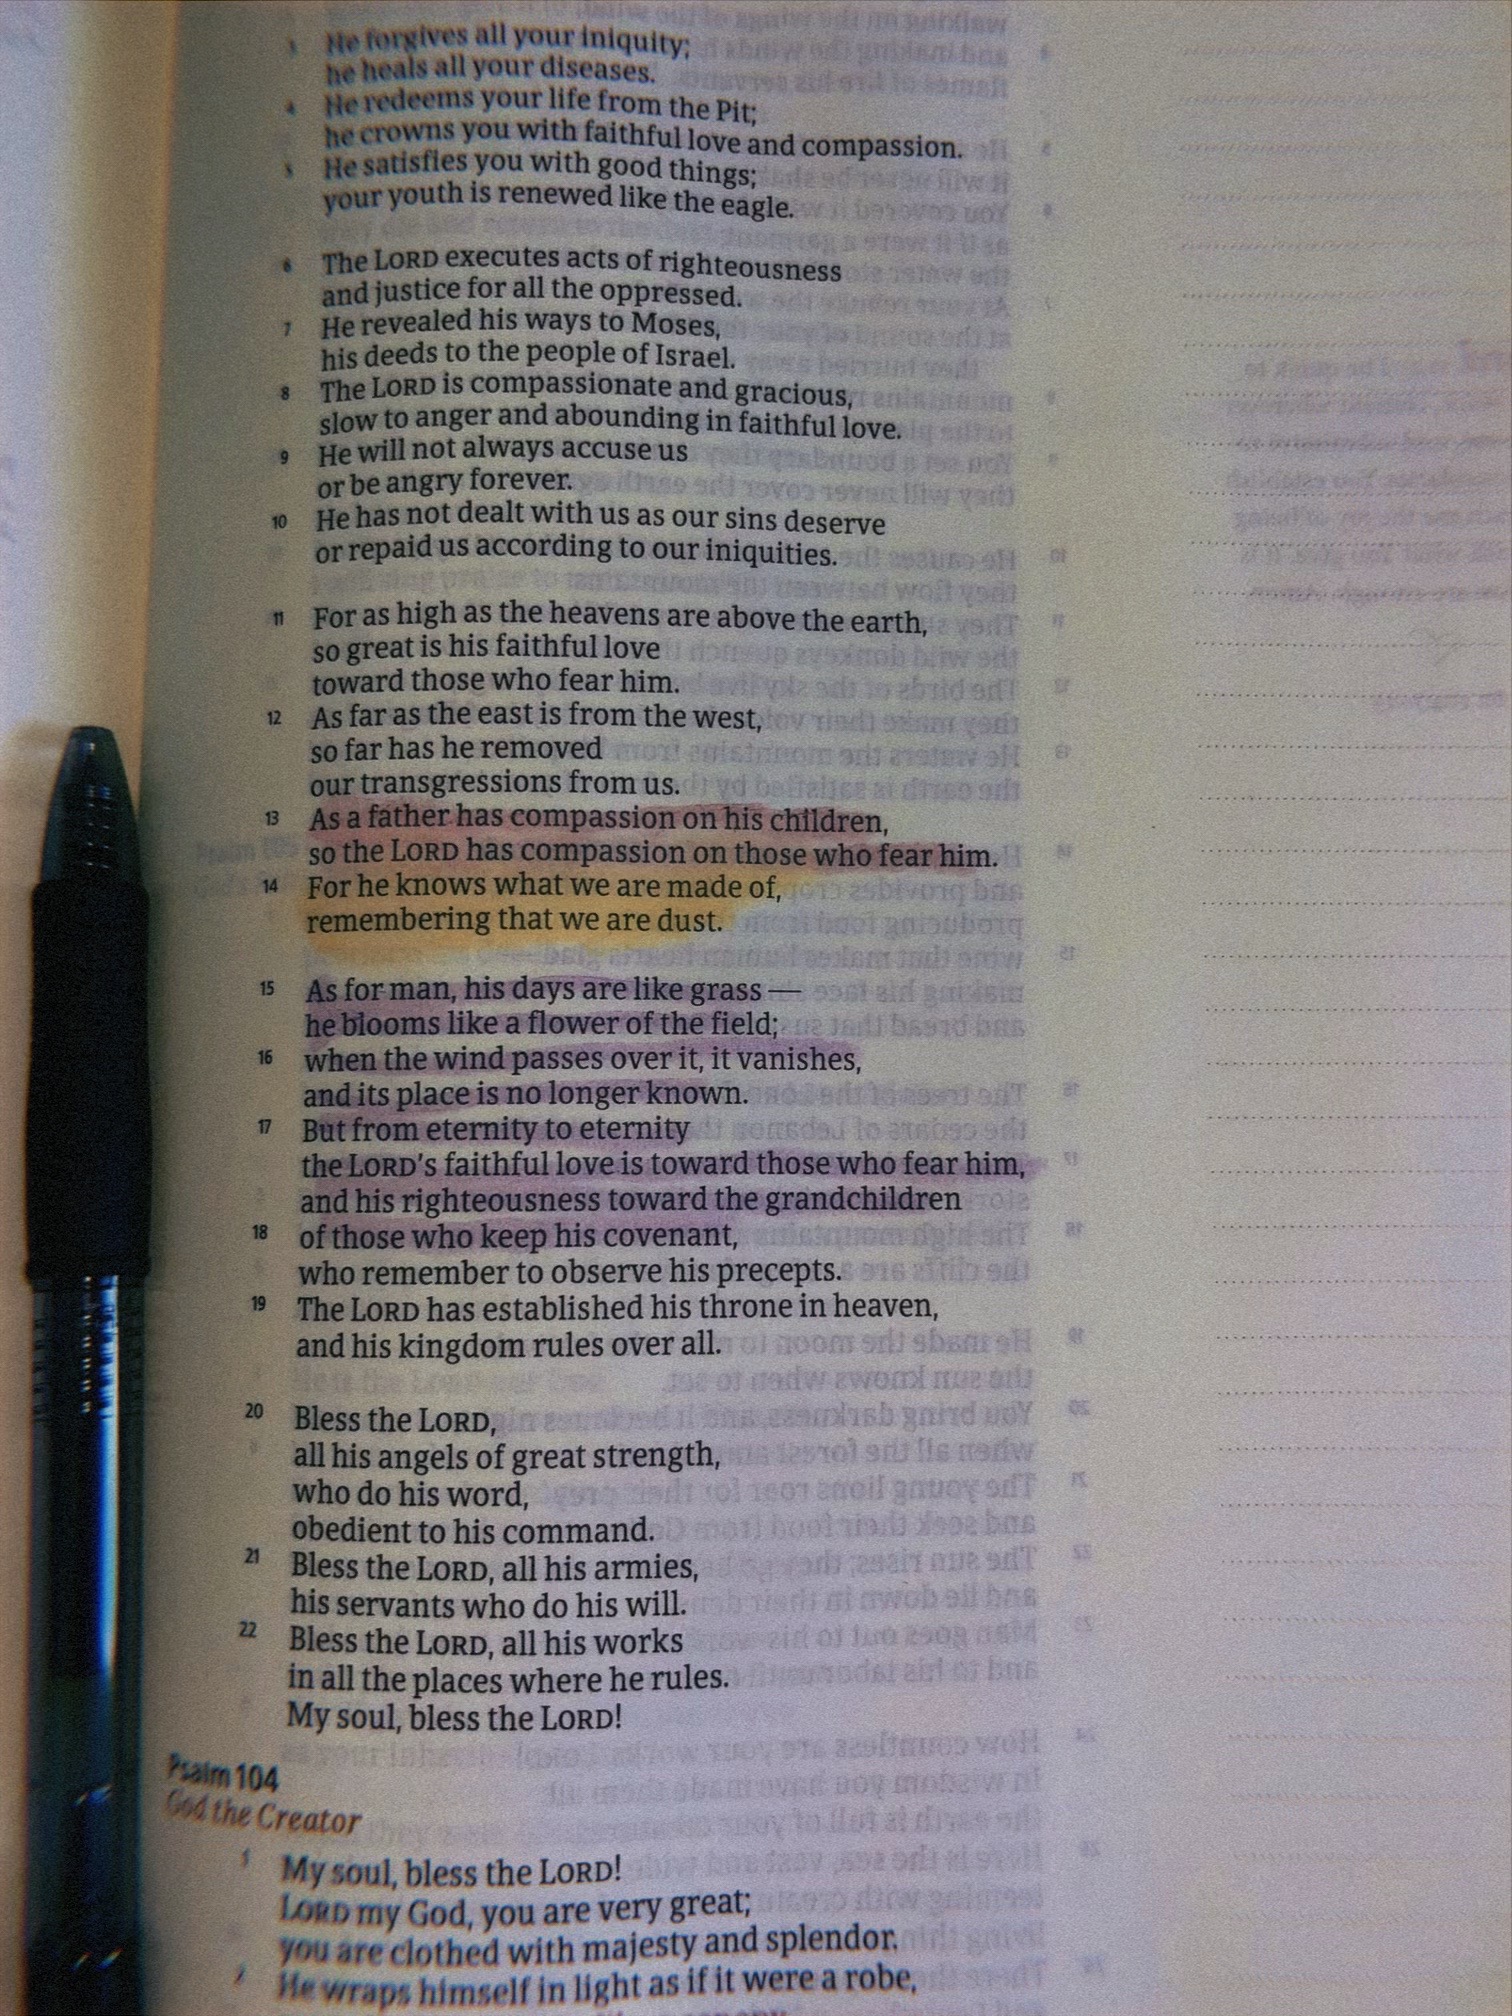 3 He forgives all your iniquity;
he heals all your diseases.
4 He redeems your life from the Pit;
he crowns you with faithful love and compassion.
5 He satisfies you with good things;
your youth is renewed like the eagle.
6 The LORD executes acts of righteousness
and justice for all the oppressed.
7 He revealed his ways to Moses,
his deeds to the people of Israel.
8 The LORD is compassionate and gracious,
slow to anger and abounding in faithful love.
9 He will not always accuse us
or be angry forever.
10 He has not dealt with us as our sins deserve
or repaid us according to our iniquities.
11 For as high as the heavens are above the earth,
so great is his faithful love
toward those who fear him.
12 As far as the east is from the west,
so far has he removed
our transgressions from us.
13 As a father has compassion on his children,
so the LORD has compassion on those who fear him.
14 For he knows what we are made of,
remembering that we are dust.
15 As for man, his days are like grass —
he blooms like a flower of the field;
16 when the wind passes over it, it vanishes,
and its place is no longer known.
17 But from eternity to eternity
the LORD's faithful love is toward those who fear him,
and his righteousness toward the grandchildren
18 of those who keep his covenant,
who remember to observe his precepts.
19 The LORD has established his throne in heaven,
and his kingdom rules over all.
20 Bless the LORD,
all his angels of great strength,
who do his word,
obedient to his command.
21 Bless the LORD, all his armies,
his servants who do his will.
22 Bless the LORD, all his works
in all the places where he rules.
My soul, bless the LORD!
Psalm 104
God the Creator
1 My soul, bless the LORD!
LORD my God, you are very great;
you are clothed with majesty and splendor.
2 He wraps himself in light as if it were a robe,